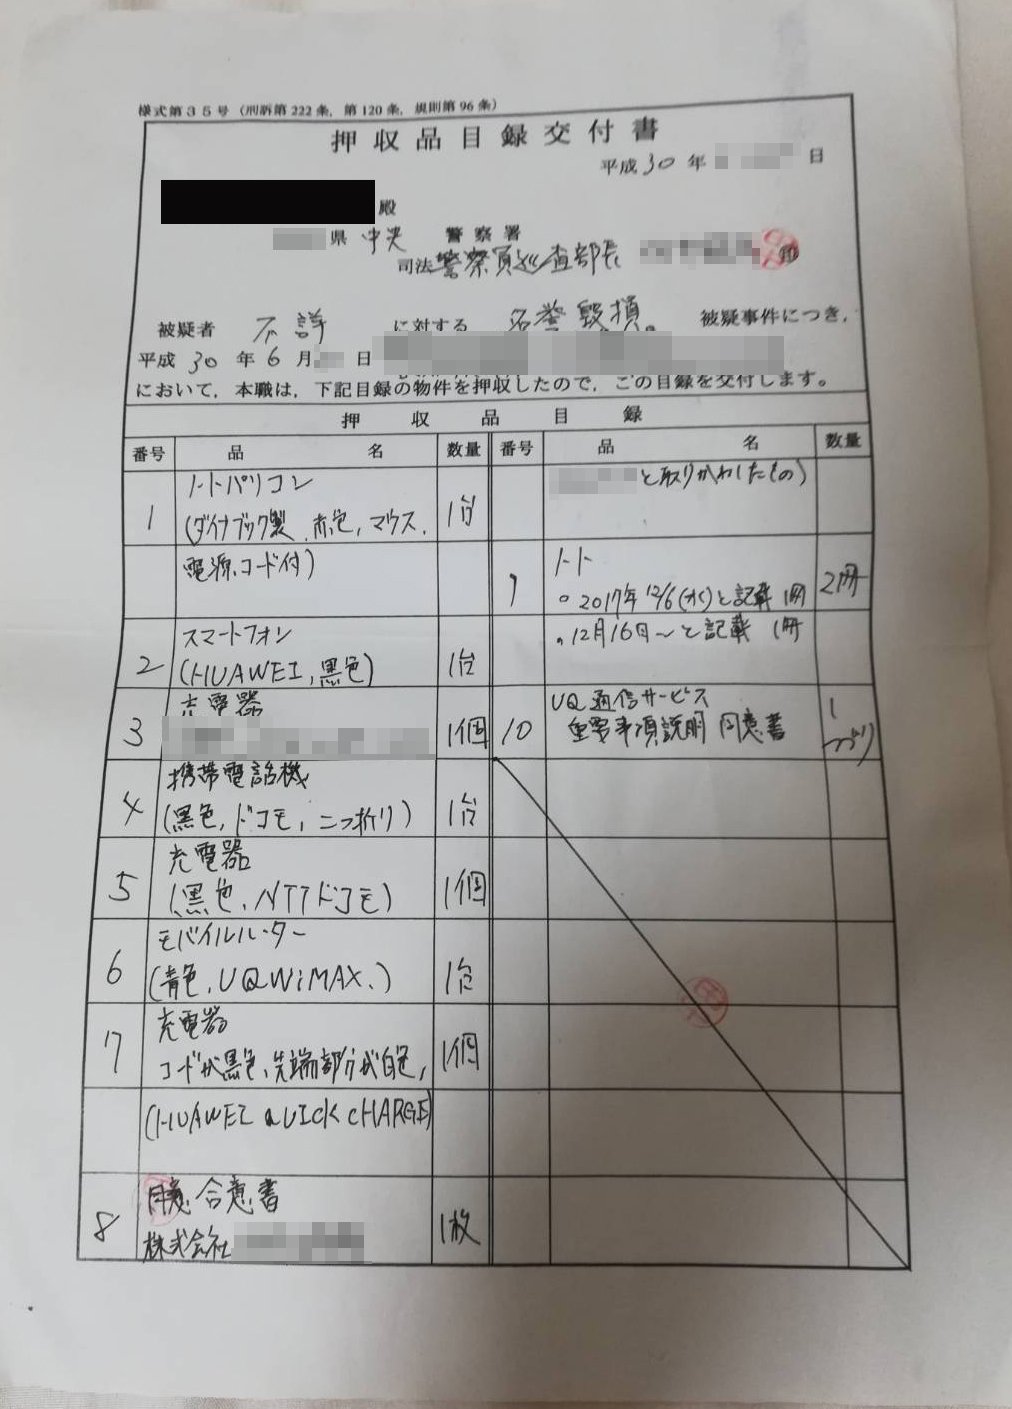 様式第35号(刑訴第222条,第120条,規則第96条)
押収品目録交付書
平成30年 日
殿
県中央警察署
司法警察員巡査部長 ㊞
被疑者 不詳 に対する 名誉毀損 被疑事件につき,
平成30年6月 日
において,本職は,下記目録の物件を押収したので,この目録を交付します。
押収品目録
番号 品名 数量 番号 品名 数量
1 ノートパソコン
(ダイナブック製、赤色,マウス、 1台
電源コード付)
2 スマートフォン
(HUAWEI,黒色) 1台
3 充電器
1個
4 携帯電話機
(黒色,ドコモ,二つ折り) 1台
5 充電器
(黒色,NTTドコモ) 1個
6 モバイルルーター
(青色,UQ WiMAX、) 1台
7 充電器
コードが黒色、先端部分が白色, 1個
(HUAWEI QUICK CHARGE)
8 合意書
株式会社 1枚
と取りかわしたもの)
9 ノート
。2017年12/6(水)と記載 1冊 2冊
。12月16日〜と記載 1冊
10 UQ通信サービス
重要事項説明 同意書 1
つづり